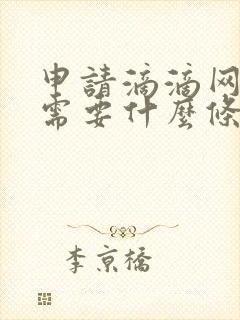 申請滴滴网
需要什麼條
李京橋